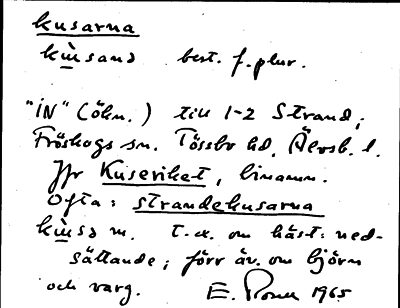 kusarna
kùsanə best. f. plur.
"IN" (ökn.) till 1-2 Strand,
Fröskogs sn. Tössbo hd, Älvsb. l.
Jfr Kuseriket, binamn.
Ofta: strandekusarna
kùsə m. t.ex. om häst: ned-
sättande; förr äv. om björn
och varg. E. 1965